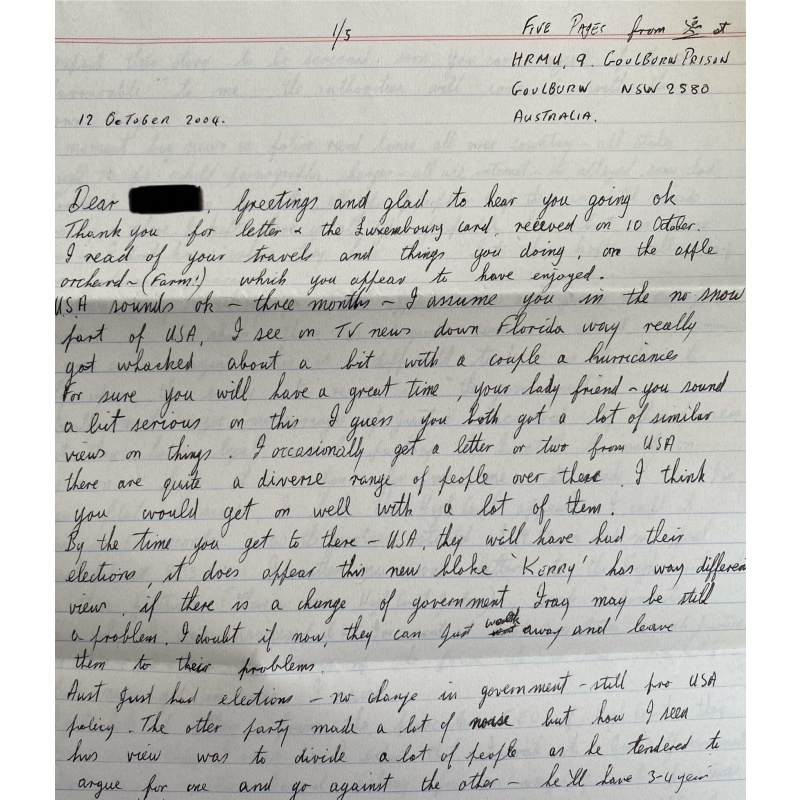 1/5
FIVE PAGES from at
HRMU, 9. GOULBURN PRISON
GOULBURN NSW 2580
12 OCTOBER 2004.
AUSTRALIA.
Dear , Greetings and glad to hear you going ok
Thank you for letter & the Luxembourg card, received on 10 October.
I read of your travels and things you doing, on the apple
orchard ~ (Farm!) which you appear to have enjoyed.
USA sounds ok - three months - I assume you in the no snow
part of USA, I see on TV news down Florida way really
got whacked about a bit with a couple a hurricanes
For sure you will have a great time, your lady friend - you sound
a bit serious on this I guess you both got a lot of similar
views on things. I occasionally get a letter or two from USA
there are quite a diverse range of people over there. I think
you would get on well with a lot of them.
By the time you get to there - USA, they will have had their
elections, it does appear this new bloke 'KERRY' has way differen
view, if there is a change of government Iraq may be still
a problem. I doubt if now, they can just walk away and leave
them to their problems.
Aust Just had elections - no change in government - still pro USA
policy. The other party made a lot of noise but how I seen
his view was to divide a lot of people as he tendered to
argue for one and go against the other - he'll have 3-4 year